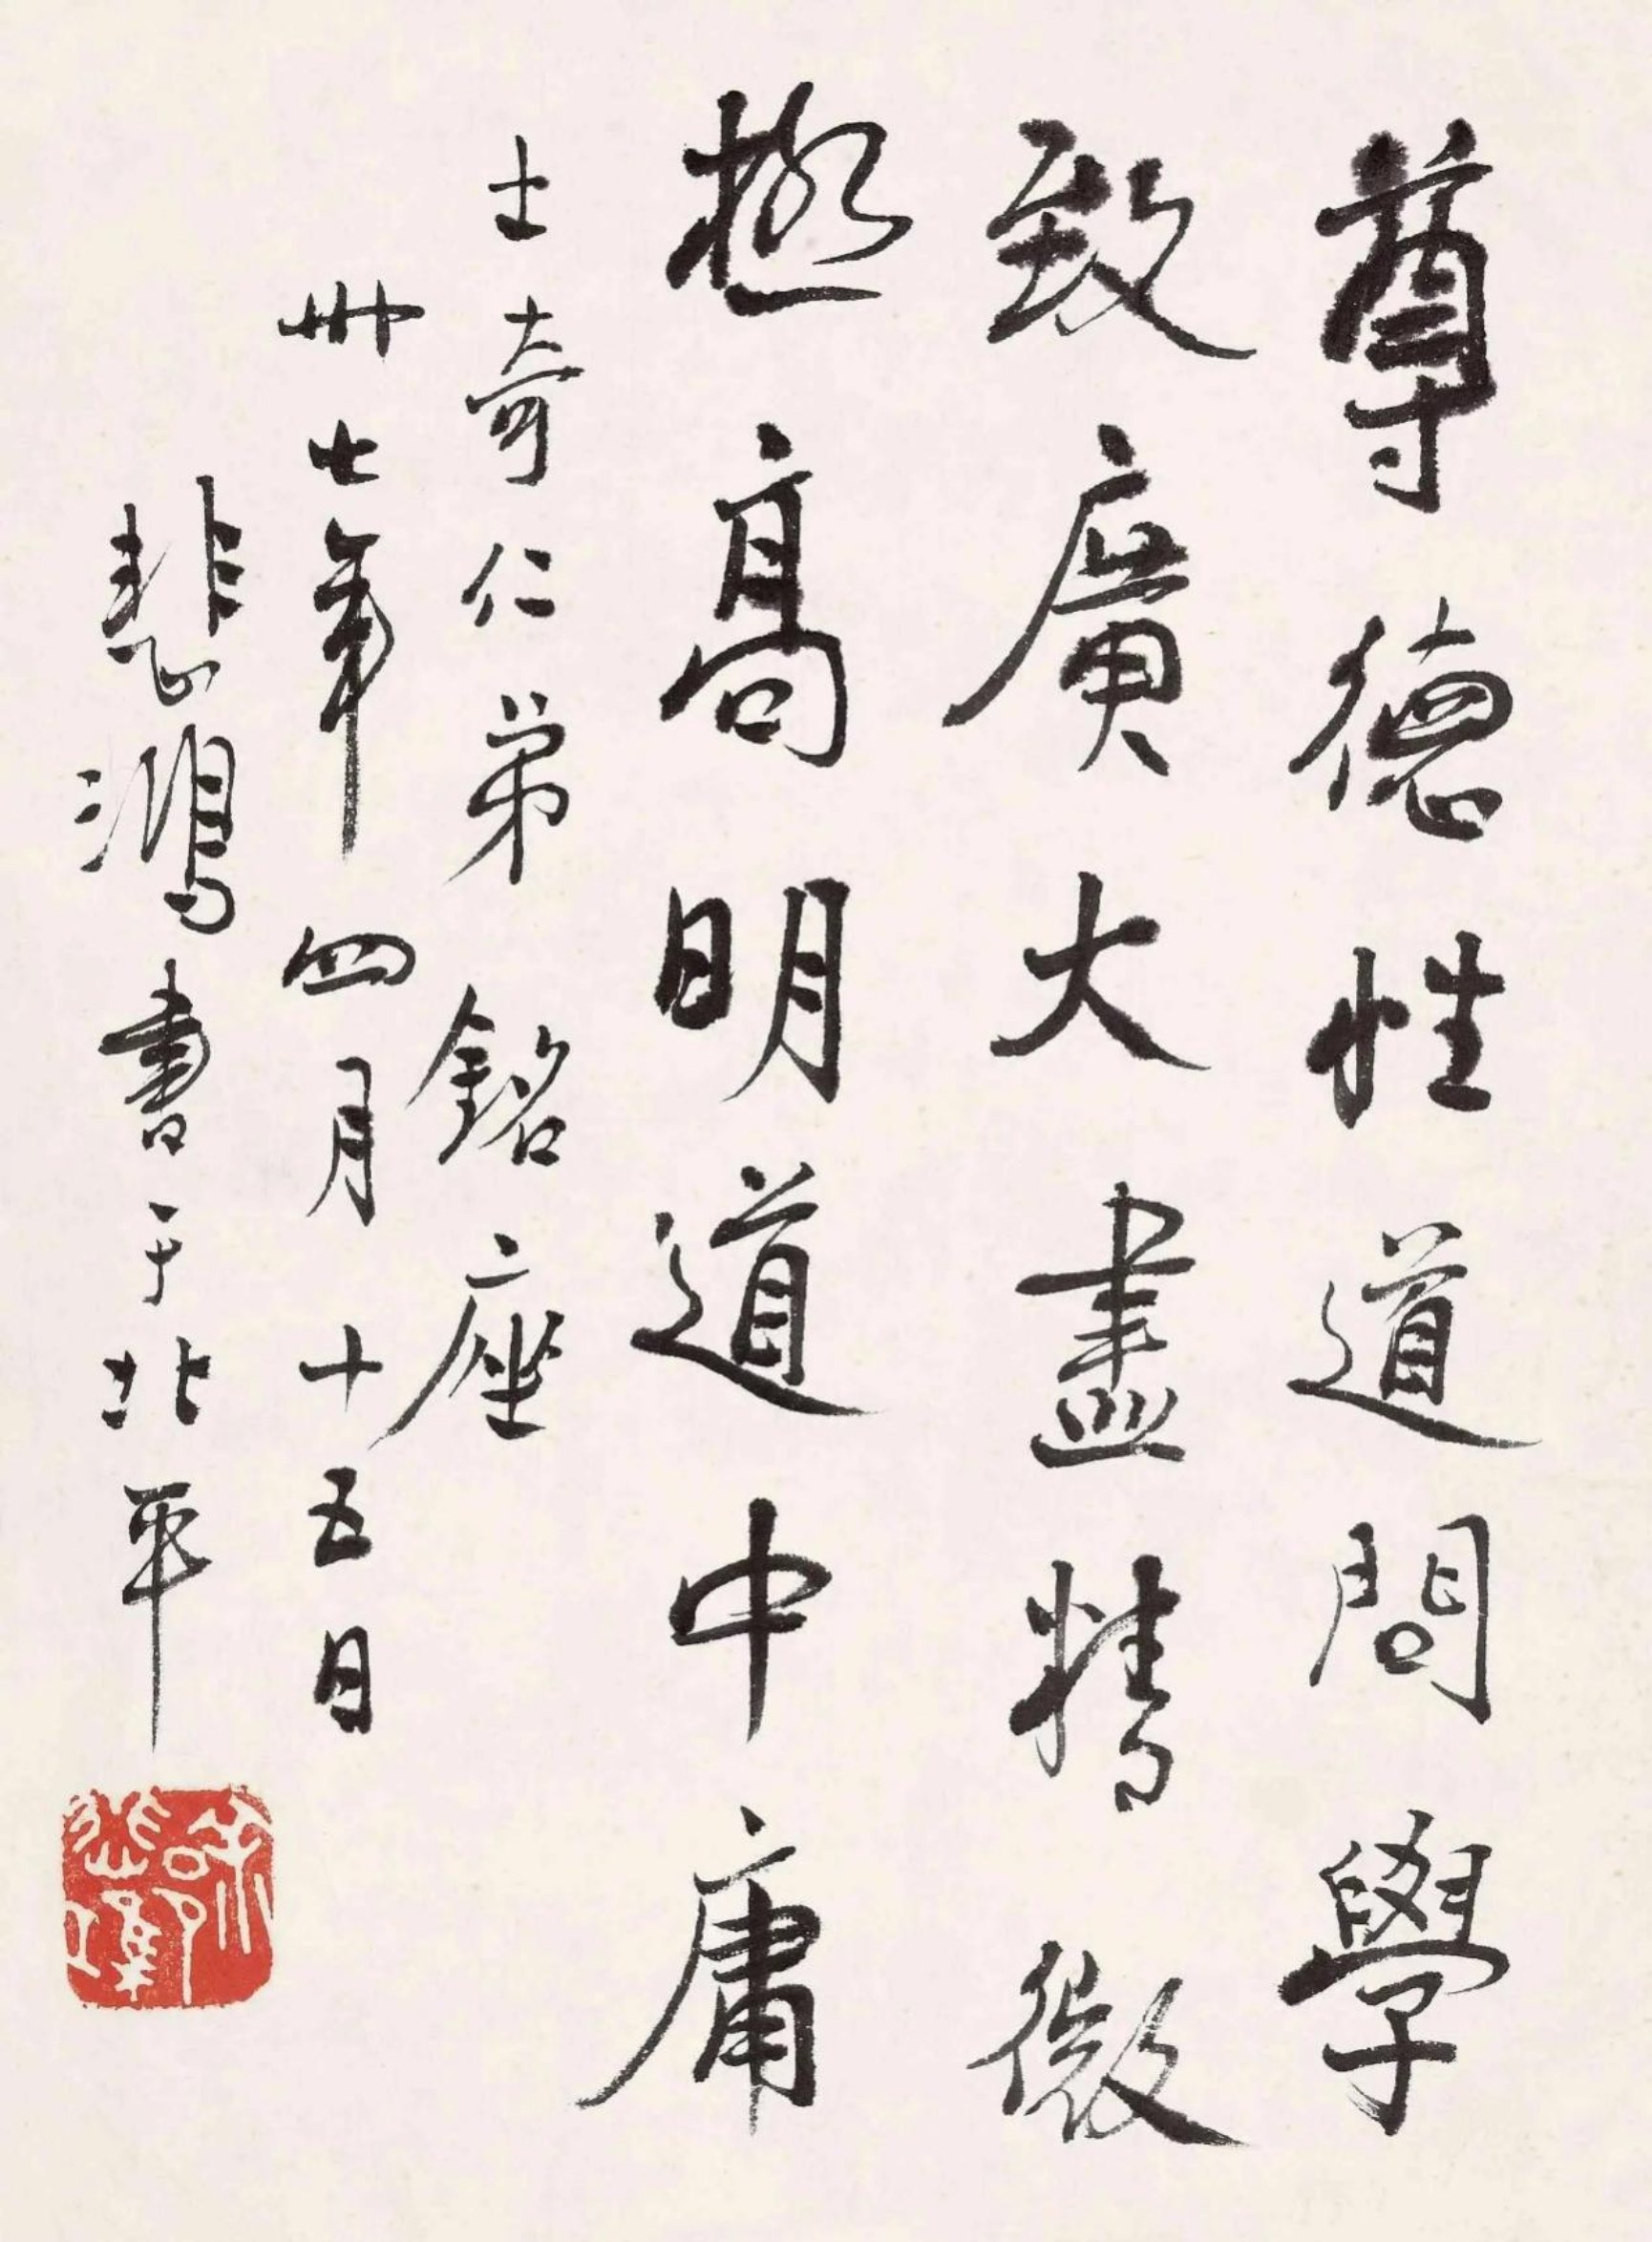 尊德性道問學
致廣大盡精微
極高明道中庸
士奇仁弟銘座
卅七年四月十五日
悲鴻書于北平